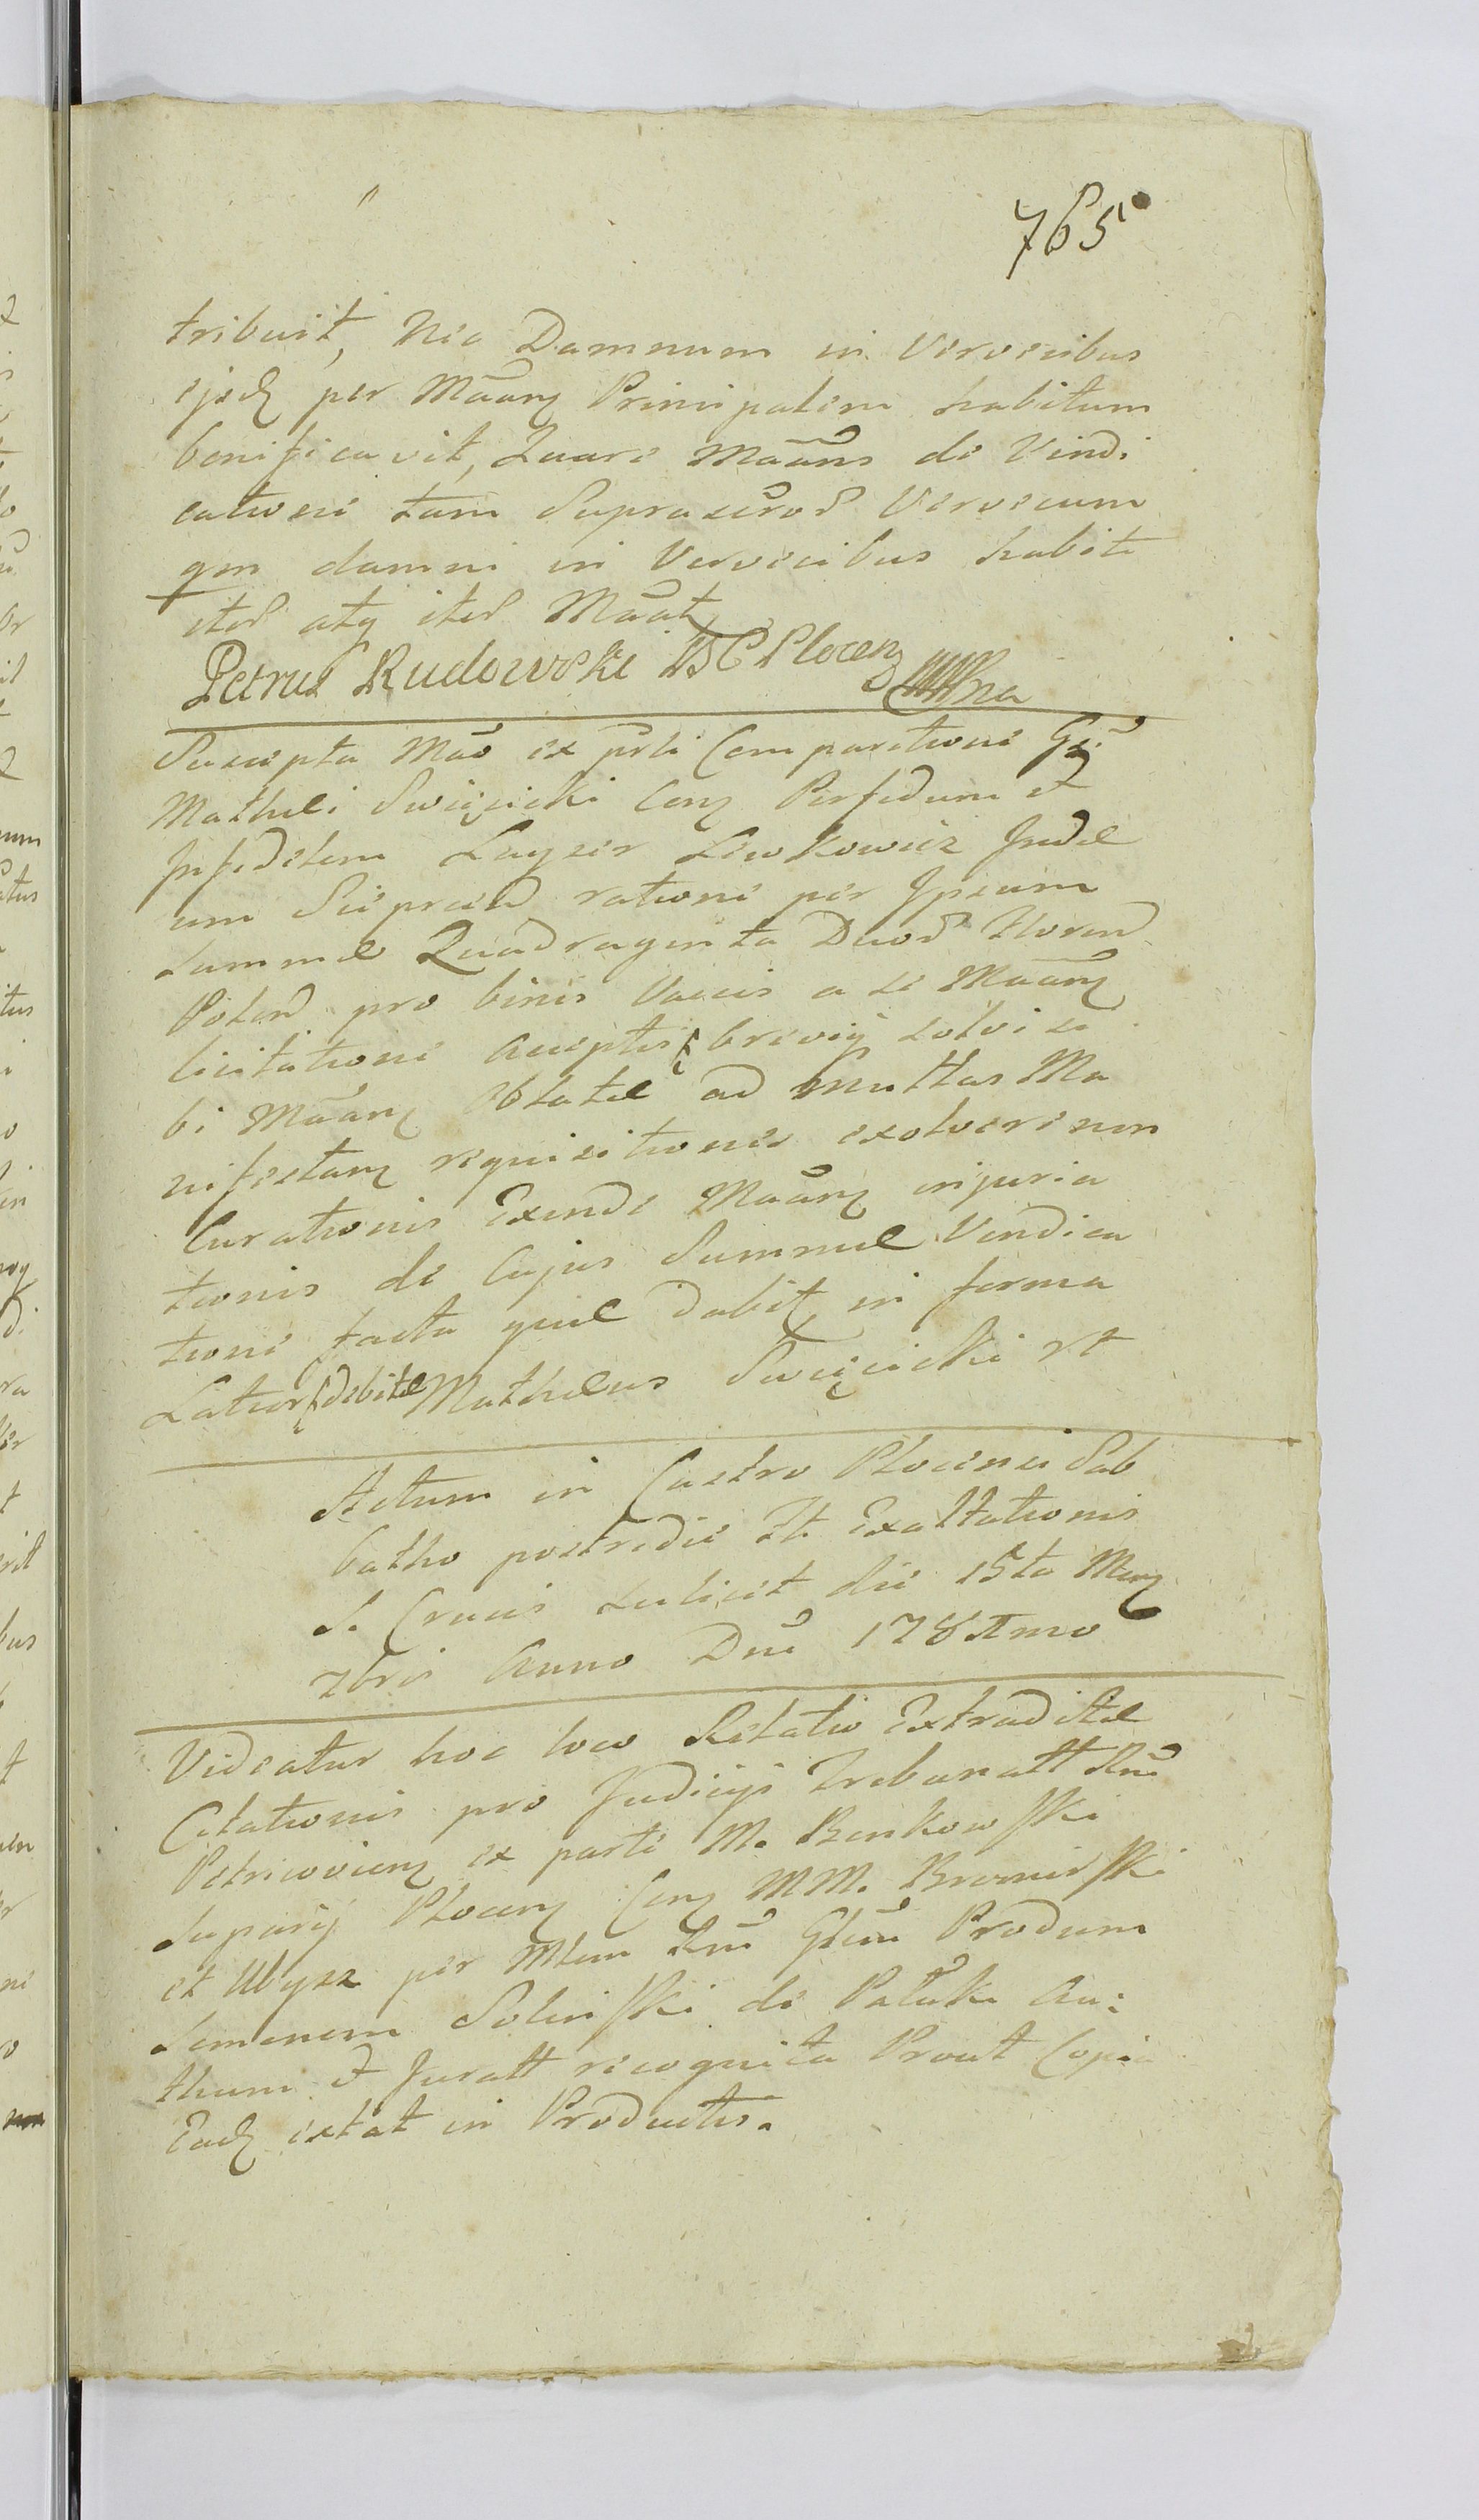 765
tribuit, Nec Damnum in Vervecibus
ejsd per Mãanz Principalem habitum
bonificavit, Quare Mãans de Vindi
catione tam Suprascrod Vervecum
qm damni in Vervecibus habiti
ited atq ited Mãat
Petrus Rudowski BCPlocen
Suscepta Mão ex prti Comparitione Gsi
Mathei Swięcicki Conz Perfidum et
Infidelem Layzer Lewkowicz Judæ
um Sieprcen ratione per Ipsum
Summæ Quadraginta Duor Floren
Polon pro binis Vaccis a se Mãanz
licitatione acceptis breviq solvi si
bi Mãanz Oblatæ ad multas Ma
nifestanz requisitiones exolvere non
Curationis Exinde Mãanz injuria
tionis de Cujus Summæ Vindica
tione facta quæ dabit in forma
Latior debitæ Matheus Swięcicki rt
Actum in Castro Plocensi Sab
batho postridie Fti Exaltationis
S. Crucis Scilicet die 15ta Menz
7bris Anno Dni 178 mo
Videatur hoc loco Relatio Extraditæ
Citationis pro Judicijs Tribunalt Rni
Petricoviens ex parte M. Benkowski
Suparij Ploceny Conz MM. Bromirski
et Ubysz per Mlem Rni Glem Produm
Simonem Soliński de Pałuki Au:
thum et Juratt recognita Prout Copia
Ead extat in Productis.